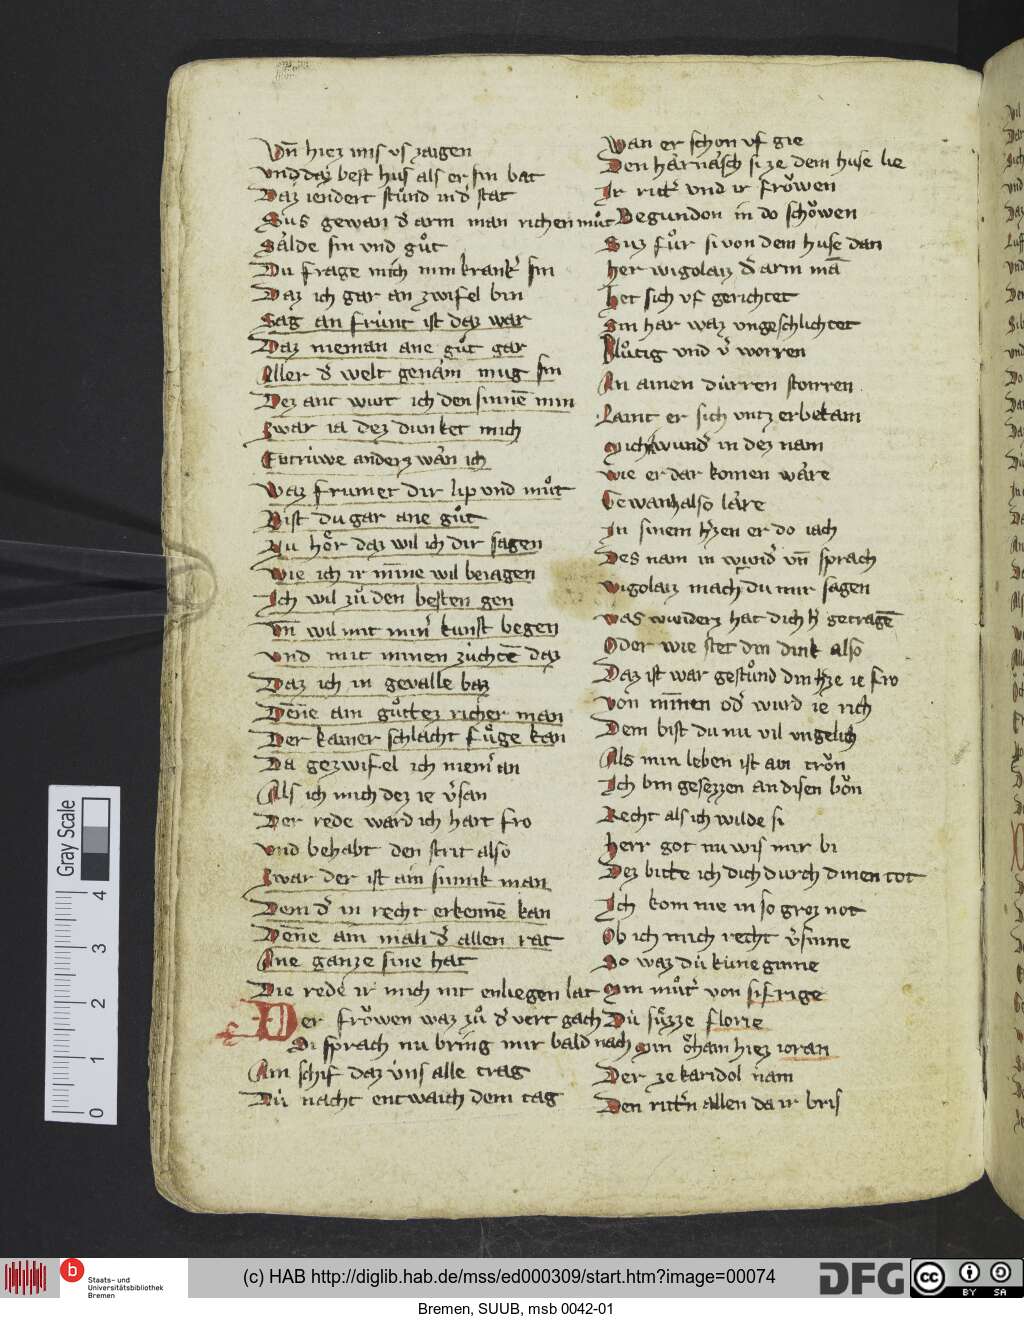 Vn̄ hiez mis vs zaigen
vnd daz best hus als er sin bat
Daz iendert stůnd in d' stat
Sus gewan d' arm man richen můt
Sålde sin vnd gůt
Du frage mich min krank' sin
Daz ich gar an zwifel bin
Sag an frünt ist daz war
Daz nieman ane gůt gar
Aller d' welt genäm mug sin
Dez ant wurt ich den sinnē min
Zwar ia dez dunket mich
Entrüwe anderz wån ich
Waz frumet dir lip vnd můt
Bist du gar ane gůt
Nu hőr daz wil ich dir sagen
Wie ich ir minne wil beiagen
Ich wil zů den besten gen
Vn̄ wil mit min' kunst begen
Vnd mit minen züchtē daz
Daz ich in gevalle baz
Dēne ain gůttez richer man
Der kainer schlacht fůge kan
Da gezwifel ich niem' an
Als ich mich dez ie v'san
Der rede ward ich hart fro
Vnd behabt den strit also
Zwar der ist ain sinnik man
Dem d' in recht erkennē kan
Dēne ain man d' allen rat
Ane ganze sine hat
Die rede ir mich nit enliegen lat
Der frŏwen waz zů d' vert gach
Si sprach nu bring mir bald nach
Ain schif daz vns alle trag
Dü nacht entwaich dem tag
Wan er schon vf gie
Den hårnåsch si ze dem huse lie
Ir ritt' vnd ir frŏwen
Begundon in do schŏwen
Suz fůr si von dem huse dan
her wigolaiz d' arm mā
het sich vf gerichtet
Sin har waz vngeschlichtet
Plůtig vnd v' worren
An ainen dürren storren
Laint er sich vntz er bekam
Mich wund' in dez nam
Wie er dar komen wåre
Gewanz also låre
In sinem h'zen er do iach
Des nam in wund' vn̄ sprach
Wigolaiz mach du mir sagen
Was wunderz hat dich h' getragē
Oder wie stet din dink also
Daz ist war gestůnd din h'ze ie fro
Von minnen od' wurd ie rich
Dem bist du nu vil vngelich
Als min leben ist ain trŏn
Ich bin gesezzen an disen bŏn
Recht als ich wilde si
herr got nu wis mir bi
Dez bitte ich dich durch dinen tot
Ich kom nie in so groz not
Ob ich mich recht v'sinne
So waz dü küneginne
Min můt' von sifrige
Dü sůzze florie
Min ŏham hiez ioran
Der ze karidol nam
Den ritt'n allen da ir bris
Gray Scale
4
3
2
1
0
b
Staats- und
Universitätsbibliothek
Bremen
(c) HAB http://diglib.hab.de/mss/ed000309/start.htm?image=00074
DFG
cc
BY
SA
Bremen, SUUB, msb 0042-01